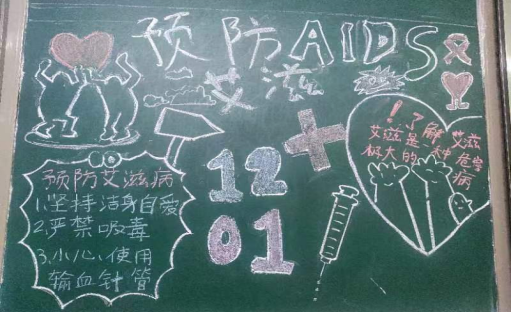 预防AIDS
艾滋
!了解艾滋
艾滋是一种危害
极大的病
12
01
预防艾滋病
1.坚持洁身自爱
2.严禁吸毒
3.小心使用
输血针管